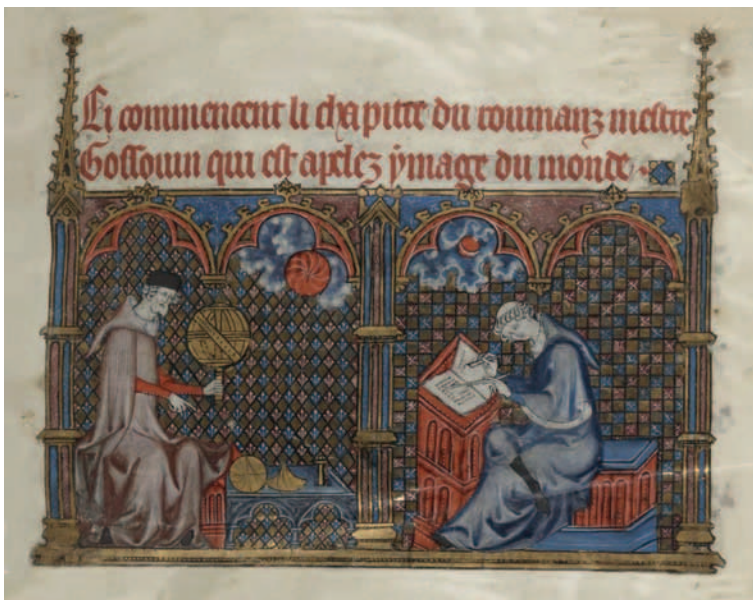 Ci commencent li chapitre du roumanz mestre
Gossouin qui est apelez ymage du monde